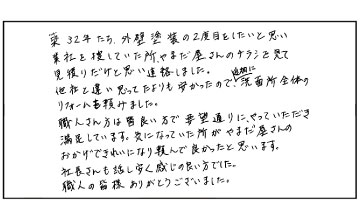 築32年たち、外壁塗装の2度目をしたいと思い
業社を捜していた所、やまだ屋さんのチラシを見て
見積りだけと思い連絡しました。
他社と違い思ってたよりも安かったので、追加に洗面所全体の
リフォームも頼みました。
職人さん方は皆良い方で希望通りに、やっていただき
満足しています。気になっていた所がやまだ屋さんの
おかげできれいになり頼んで良かったと思います。
社長さんも話し安く感じの良い方でした。
職人の皆様ありがとうございました。